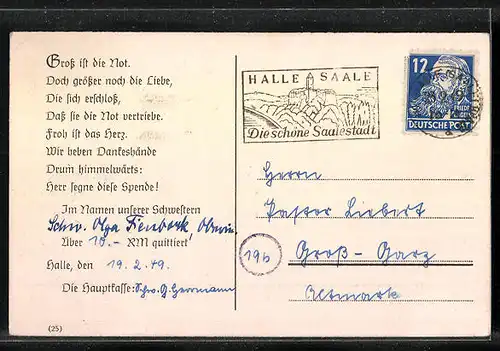 Groß ist die Not.
Doch größer noch die Liebe,
Die sich erschloß,
Daß sie die Not vertriebe.
Froh ist das Herz.
Wir heben Dankeshände
Drum himmelwärts:
Herr segne diese Spende!
Im Namen unserer Schwestern
Schw. Olga Fienbork, Oberin.
Über 10.- RM quittiert
Halle, den 19.2.49.
Die Hauptkasse: Schw. G. Herrmann
(25)
HALLE SAALE
Die schöne Saalestadt
12
DEUTSCHE POST
Herrn
Pastor Liebert
19b
Groß-Garz
Altmark